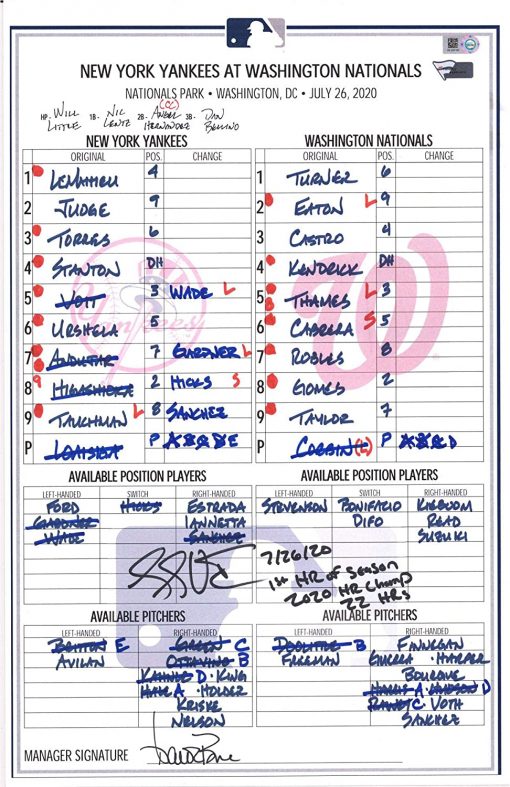 NEW YORK YANKEES AT WASHINGTON NATIONALS
NATIONALS PARK • WASHINGTON, DC • JULY 26, 2020
HP- WILL LITTLE 1B- NIC LENTZ 2B- ANGEL HERNANDEZ (CC) 3B- DAN BELLINO
NEW YORK YANKEES WASHINGTON NATIONALS
ORIGINAL POS. CHANGE ORIGINAL POS. CHANGE
1 LEMAHIEU 4 1 TURNER 6
2 JUDGE 9 2 EATON L 9
3 TORRES 6 3 CASTRO 4
4 STANTON DH 4 KENDRICK DH
5 VOIT 3 WADE L 5 THAMES L 3
6 URSHELA 5 6 CABRERA S 5
7 ANDUJAR 7 GARDNER L 7 ROBLES 8
8 HIGASHIOKA 2 HICKS S 8 GOMES 2
9 TAUCHMAN L 8 SANCHEZ 9 TAYLOR 7
P LOAISIGA P E P CORBIN (L) P D
AVAILABLE POSITION PLAYERS AVAILABLE POSITION PLAYERS
LEFT-HANDED SWITCH RIGHT-HANDED LEFT-HANDED SWITCH RIGHT-HANDED
FORD HICKS ESTRADA STEVENSON BONIFACIO KIEBOOM
GARDNER IANNETTA DIFO READ
WADE SANCHEZ SUZUKI
7/26/20
1st HR of Season
2020 HR Champ
22 HRs
AVAILABLE PITCHERS AVAILABLE PITCHERS
LEFT-HANDED RIGHT-HANDED LEFT-HANDED RIGHT-HANDED
BRITTON E GREEN C DOOLITTLE B FINNEGAN
AVILAN OTTAVINO B FREEMAN GUERRA • HARPER
KAHNLE D • KING BOURQUE
HALE A • HOLDER HARRIS A • HUDSON D
KRISKE RAINEY C VOTH
NELSON SANCHEZ
MANAGER SIGNATURE